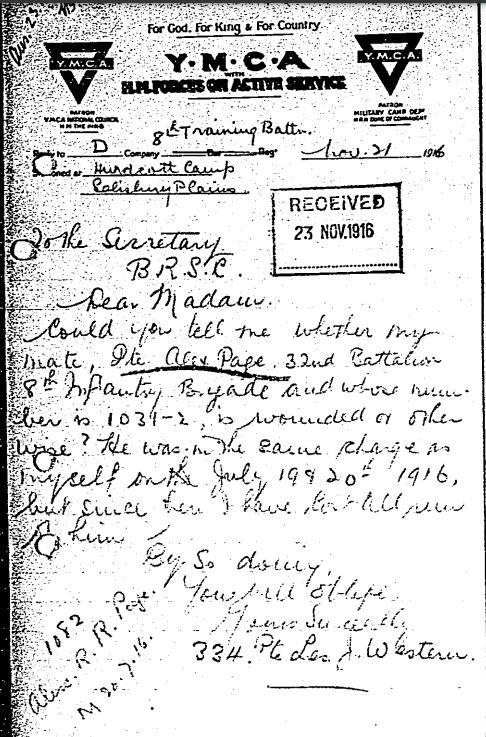 For God. For King & For Country.
Y.M.C.A
WITH
H.M. FORCES ON ACTIVE SERVICE
Y.M.C.A.
PATRON
Y.M.C.A NATIONAL COUNCIL
H.M THE KING
Y.M.C.A.
PATRON
MILITARY CAMP DEPT
H.R.H DUKE OF CONNAUGHT
8th Training Battn.
Reply to D Company Regt
Nov. 21 1916
Stationed at Hurdcott Camp
Salisbury Plains
RECEIVED
23 NOV. 1916
To the Secretary
B.R.S.C.
Dear Madam.
Could you tell me whether my
mate, Pte Alex Page, 32nd Battalion
8th Infantry Brigade and whose num-
ber is 1031-2, is wounded or other
wise? He was in the same charge as
myself on the July 19 & 20th 1916,
but since then I have lost all
him
By so doing,
You will oblige
Yours Sincerely
334. Pte Les. J. Western.
1082
Alex. R. R. Page.
M 20.7.16.